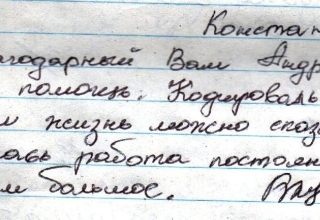 Констан
годарный Вам Андр
помощь. Кодировалъ
жизнь можно сказ
ась работа постоян
м большое.